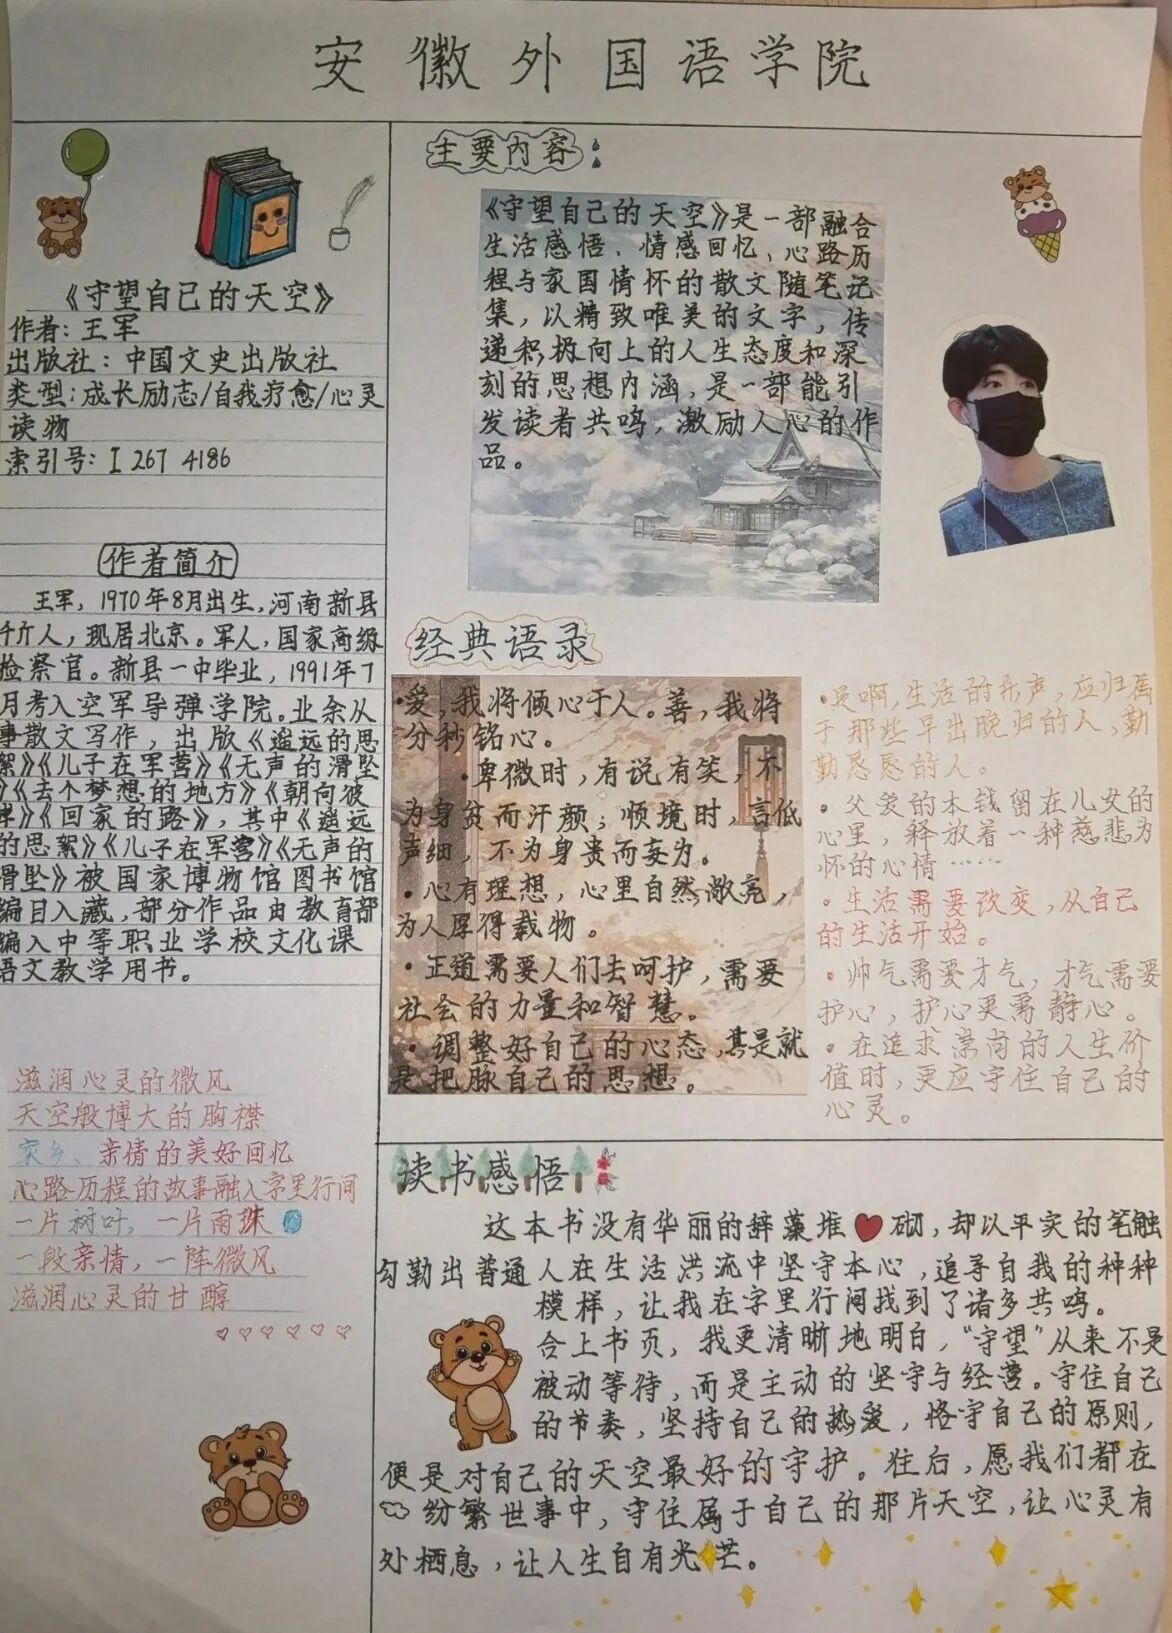 安徽外国语学院
《守望自己的天空》
作者：王军
出版社：中国文史出版社
类型：成长励志/自我疗愈/心灵
读物
索引号：I 267 4186
作者简介
王军，1970年8月出生，河南新县
千斤人，现居北京。军人，国家高级
检察官。新县一中毕业，1991年7
月考入空军导弹学院。业余从
事散文写作，出版《遥远的思
絮》《儿子在军营》《无声的滑坠
》《去个梦想的地方》《朝向彼
岸》《回家的路》，其中《遥远
的思絮》《儿子在军营》《无声的
滑坠》被国家博物馆图书馆
编目入藏，部分作品由教育部
编入中等职业学校文化课
语文教学用书。
滋润心灵的微风
天空般博大的胸襟
家乡、亲情的美好回忆
心路历程的故事融入字里行间
一片树叶，一片雨珠
一段亲情，一阵微风
滋润心灵的甘醇
主要内容：
《守望自己的天空》是一部融合
生活感悟、情感回忆、心路历
程与家国情怀的散文随笔记
集，以精致唯美的文字，传
递积极向上的人生态度和深
刻的思想内涵，是一部能引
发读者共鸣，激励人心的作
品。
经典语录
·爱，我将倾心于人。善，我将
分秒铭心。
·卑微时，有说有笑，不
为身贫而汗颜；顺境时，言低
声细，不为身贵而妄为。
·心有理想，心里自然敞亮，
为人厚得载物。
·正道需要人们去呵护，需要
社会的力量和智慧。
·调整好自己的心态，其是就
是把脉自己的思想。
·是啊，生活的乐声，应归属
于那些早出晚归的人，勤
勤恳恳的人。
·父爱的本钱留在儿女的
心里，释放着一种慈悲为
怀的心情……
·生活需要改变，从自己
的生活开始。
·帅气需要才气，才气需要
护心，护心更需静心。
·在追求崇尚的人生价
值时，更应守住自己的
心灵。
读书感悟
这本书没有华丽的辞藻堆砌，却以平实的笔触
勾勒出普通人在生活洪流中坚守本心，追寻自我的种种
模样，让我在字里行间找到了诸多共鸣。
合上书页，我更清晰地明白，“守望”从来不是
被动等待，而是主动的坚守与经营。守住自己
的节奏，坚持自己的热爱，恪守自己的原则，
便是对自己的天空最好的守护。往后，愿我们都在
纷繁世事中，守住属于自己的那片天空，让心灵有
处栖息，让人生自有光芒。